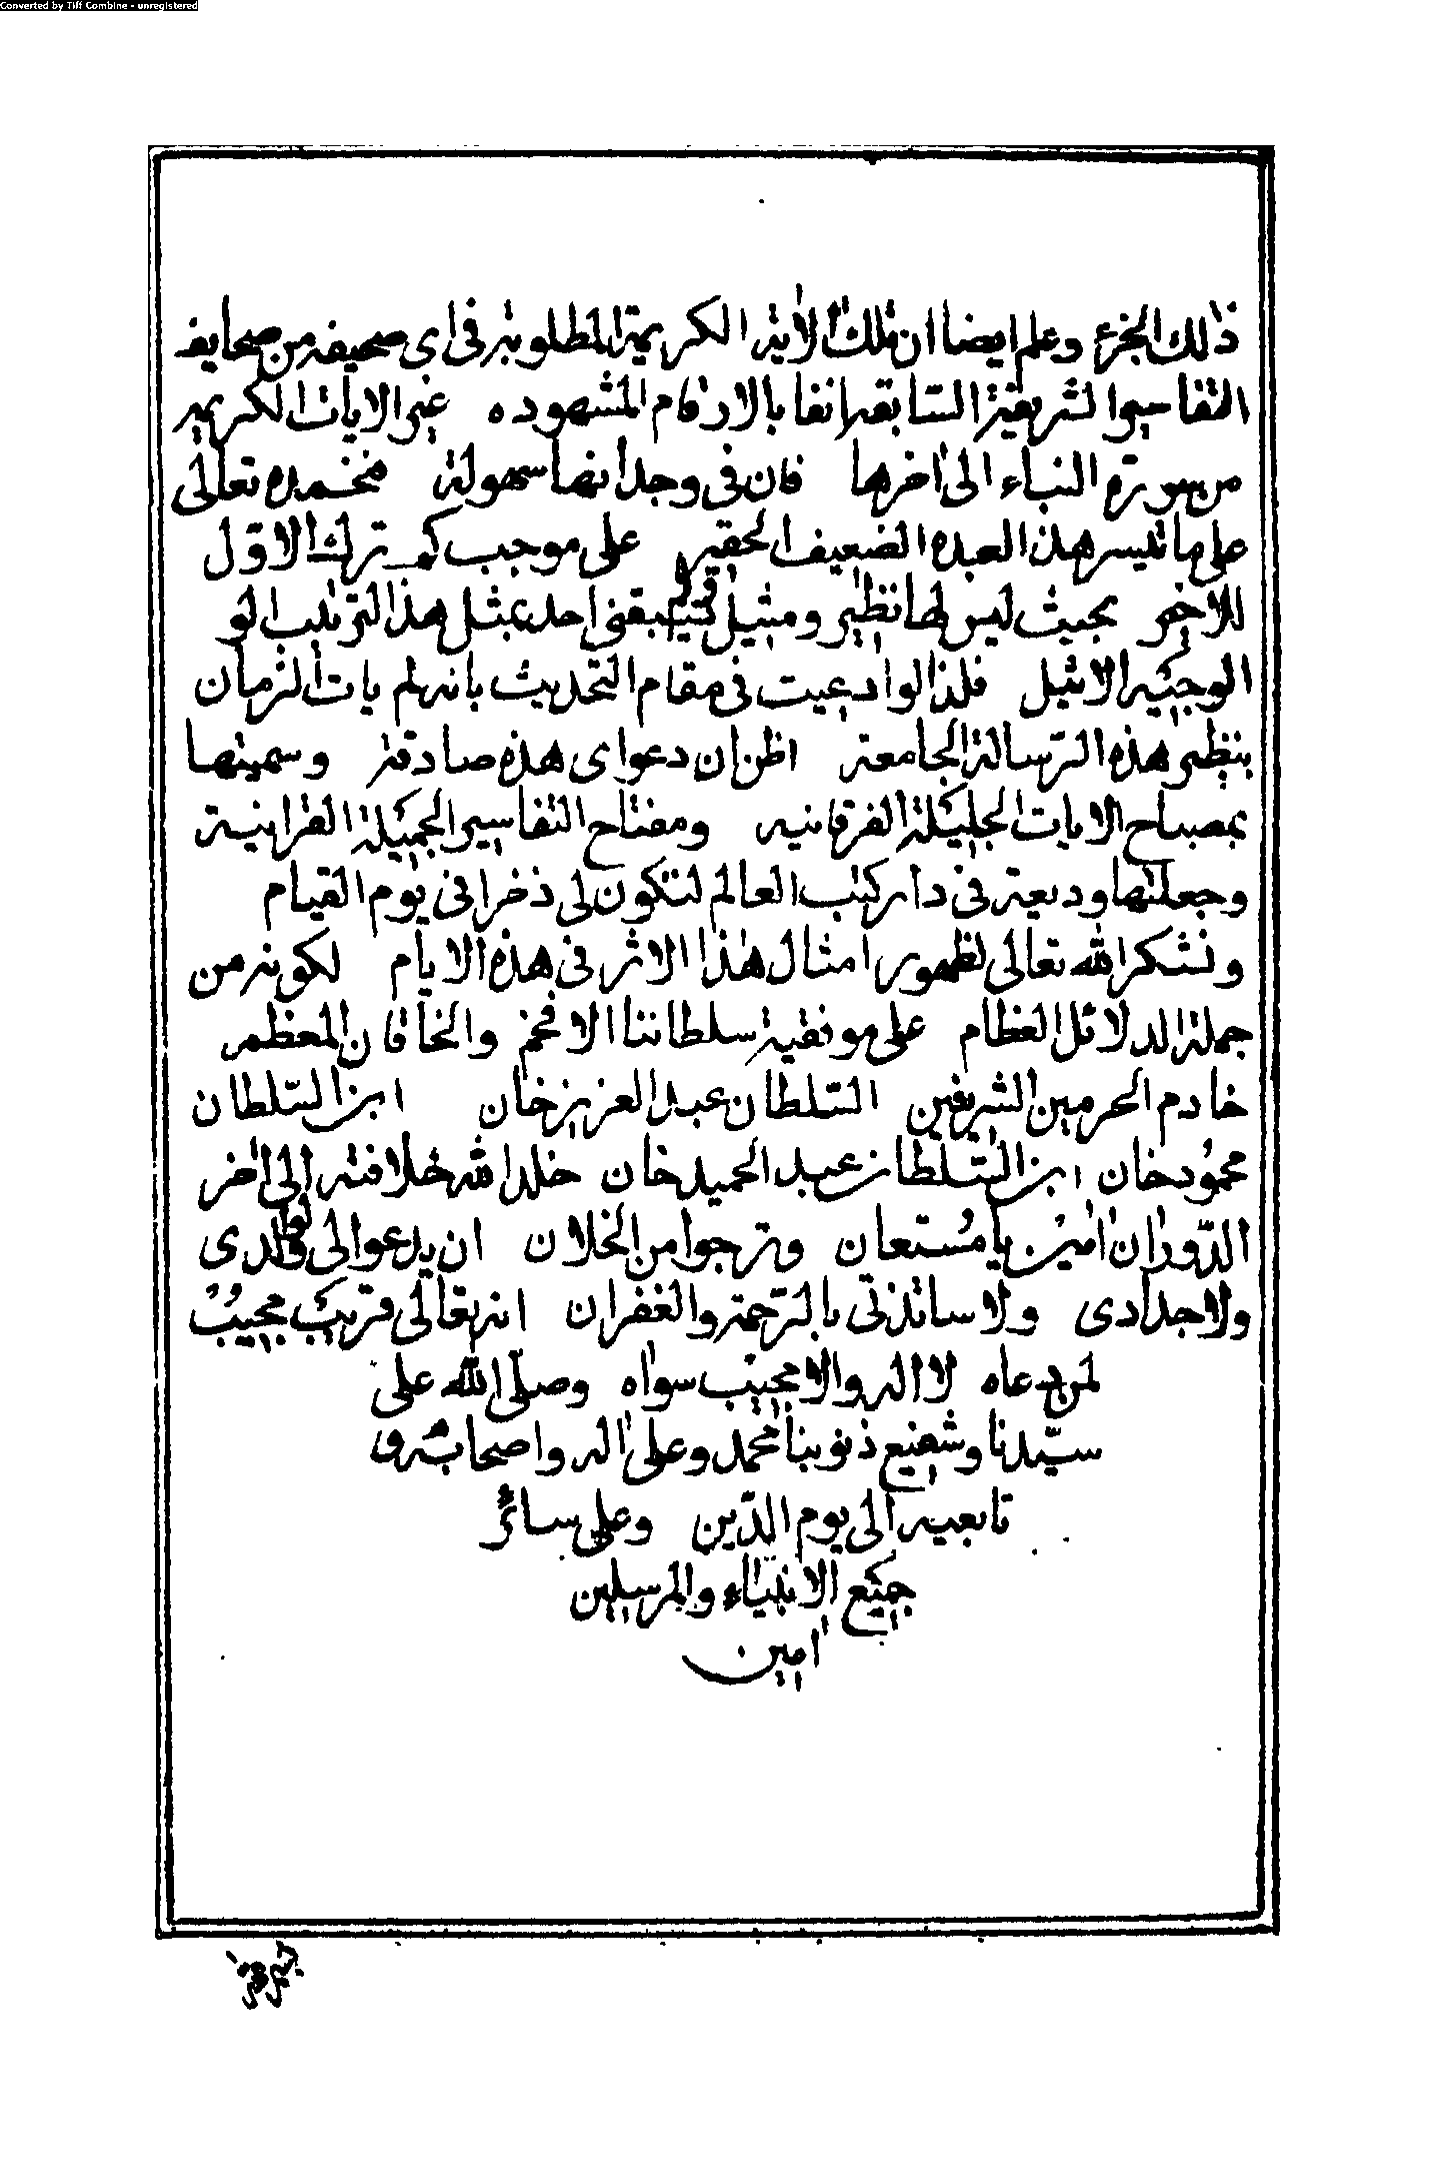 Converted by Tiff Combine - unregistered
ذلك الجزء وعلم ايضا ان تلك الاية الكريمة المطلوبة فى اى صحيفه من صحايف
التفاسير الشريفة السابقة انفا بالارقام المشهوده غير الايات الكريمه
من سورة النباء الى اخرها فان فى وجدانها سهولة فنحمده تعالى
على ما تيسر هذا العبده الضعيف الحقير على موجب كم ترك الاول
للاخر بحيث ليس لها نظير ومثيل احد بمثل هذ الترتيب الو
الوجيه الاثيل فلذا لوادعيت فى مقام التحديث بانه لم يات الزمان
بنظير هذه الرسالة الجامعة اظن ان دعواى هذه صادقة وسميتها
بمصباح الايات الجليلة الفرقانيه ومفتاح التفاسير الجميلة القرانية
وجعلتها وديعة فى دار كتب العالم لتكون لى ذخرا فى يوم القيام
ونشكر الله تعالى لظهور امثال هذا الاثر فى هذه الايام لكونه من
جملة الدلائل العظام على موفقية سلطاننا الافخم والخاقان المعظم
خادم الحرمين الشريفين السلطان عبد العزيز خان ابن السلطان
محمود خان ابن السلطان عبد الحميد خان خلد الله خلافته الى اخر
الدوران امين يا مستعان وترجوا من الخلان ان يدعوا لى ولوالدى
ولاجدادى ولاساتذتى بالرحمة والغفران انه تعالى قريب مجيب
لمن دعاه لا اله والا مجيب سواه وصلى الله على
سيدنا وشفيع ذنوبنا محمد وعلى اله واصحابه و
تابعيه الى يوم الدين وعلى سائر
جميع الانبياء والمرسلين
امين